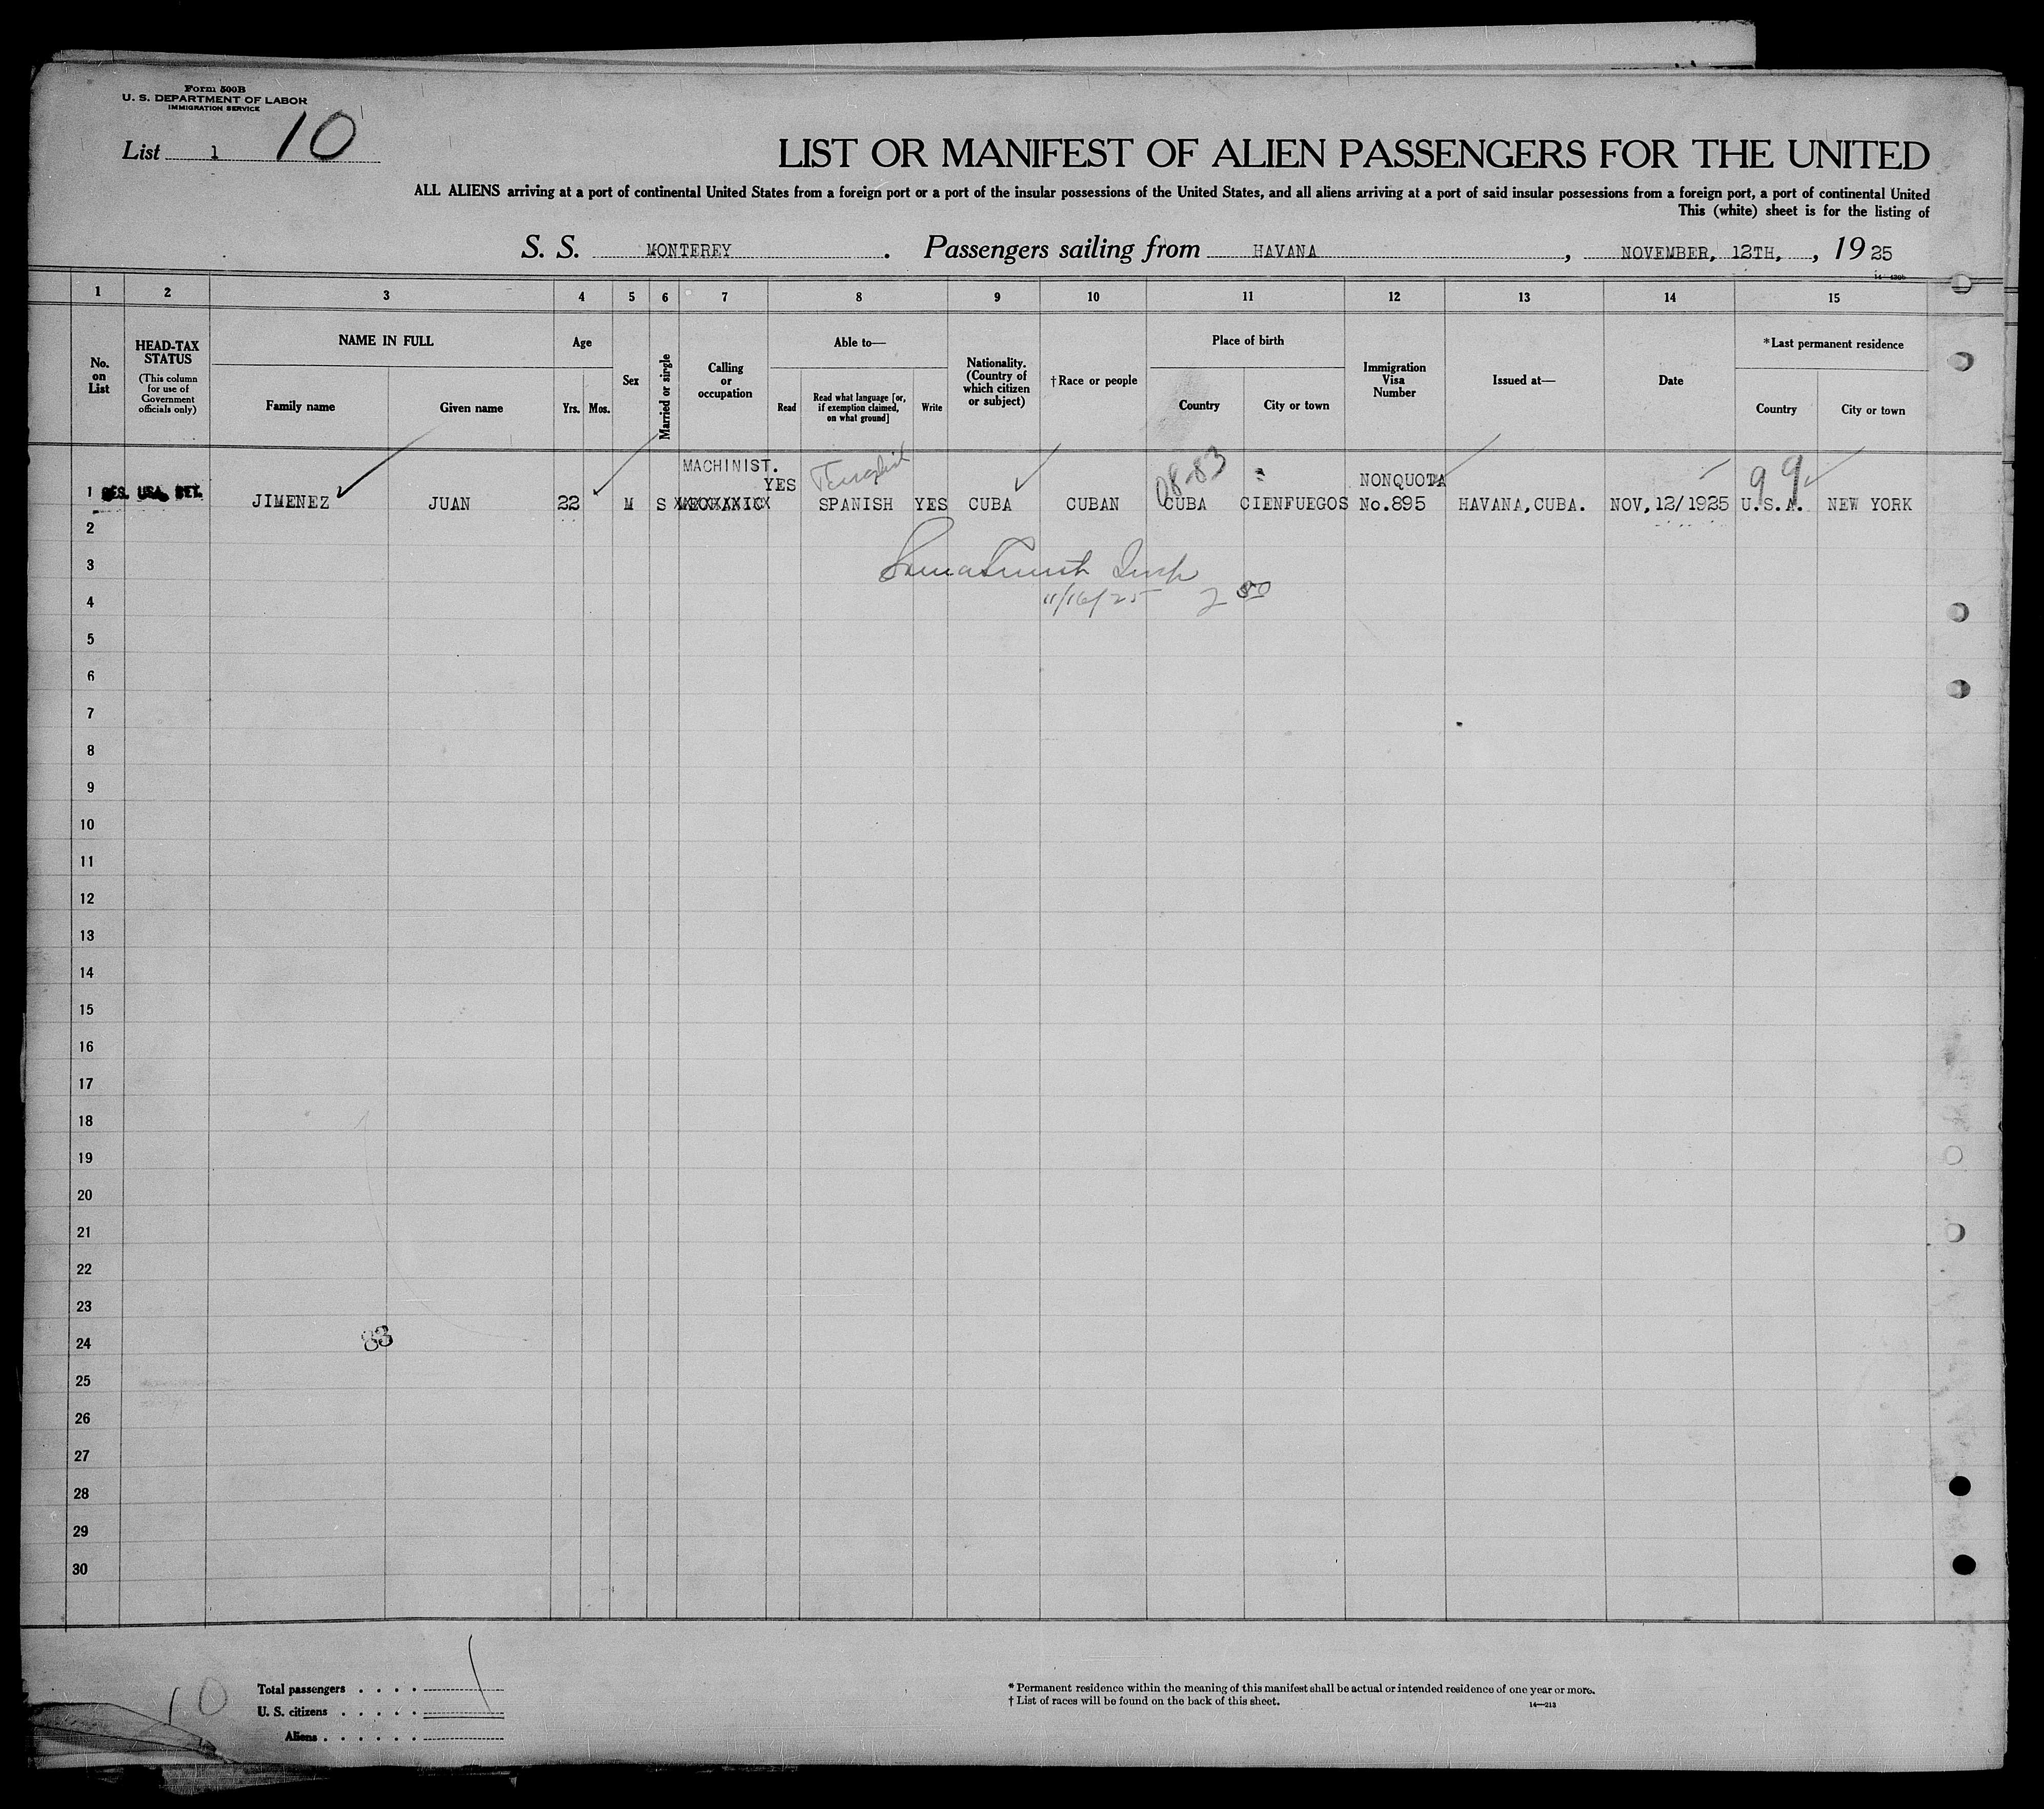 Form 500B
U. S. DEPARTMENT OF LABOR
IMMIGRATION SERVICE
List 1 10
LIST OR MANIFEST OF ALIEN PASSENGERS FOR THE UNITED
ALL ALIENS arriving at a port of continental United States from a foreign port or a port of the insular possessions of the United States, and all aliens arriving at a port of said insular possessions from a foreign port, a port of continental United
This (white) sheet is for the listing of
S. S. MONTEREY. Passengers sailing from HAVANA, NOVEMBER, 12TH, , 1925
1 2 3 4 5 6 7 8 9 10 11 12 13 14 15
No. on List
HEAD-TAX STATUS
(This column for use of Government officials only)
NAME IN FULL
Family name
Given name
Age
Yrs. Mos.
Sex
Married or single
Calling or occupation
Able to—
Read
Read what language [or, if exemption claimed, on what ground]
Write
Nationality. (Country of which citizen or subject)
†Race or people
Place of birth
Country
City or town
Immigration Visa Number
Issued at—
Date
*Last permanent residence
Country
City or town
MACHINIST.
YES English 08-83 NONQUOTA 99
1 RES. USA. RET. JIMENEZ JUAN 22 M S SPANISH YES CUBA CUBAN CUBA CIENFUEGOS No.895 HAVANA,CUBA. NOV,12/1925 U.S.A. NEW YORK
2
3
4 11/16/25 2 50
5
6
7
8
9
10
11
12
13
14
15
16
17
18
19
20
21
22
23
24 83
25
26
27
28
29
30
10
Total passengers . . . . 1
U. S. citizens . . . . .
Aliens . . . . . .
* Permanent residence within the meaning of this manifest shall be actual or intended residence of one year or more.
† List of races will be found on the back of this sheet.
14—213